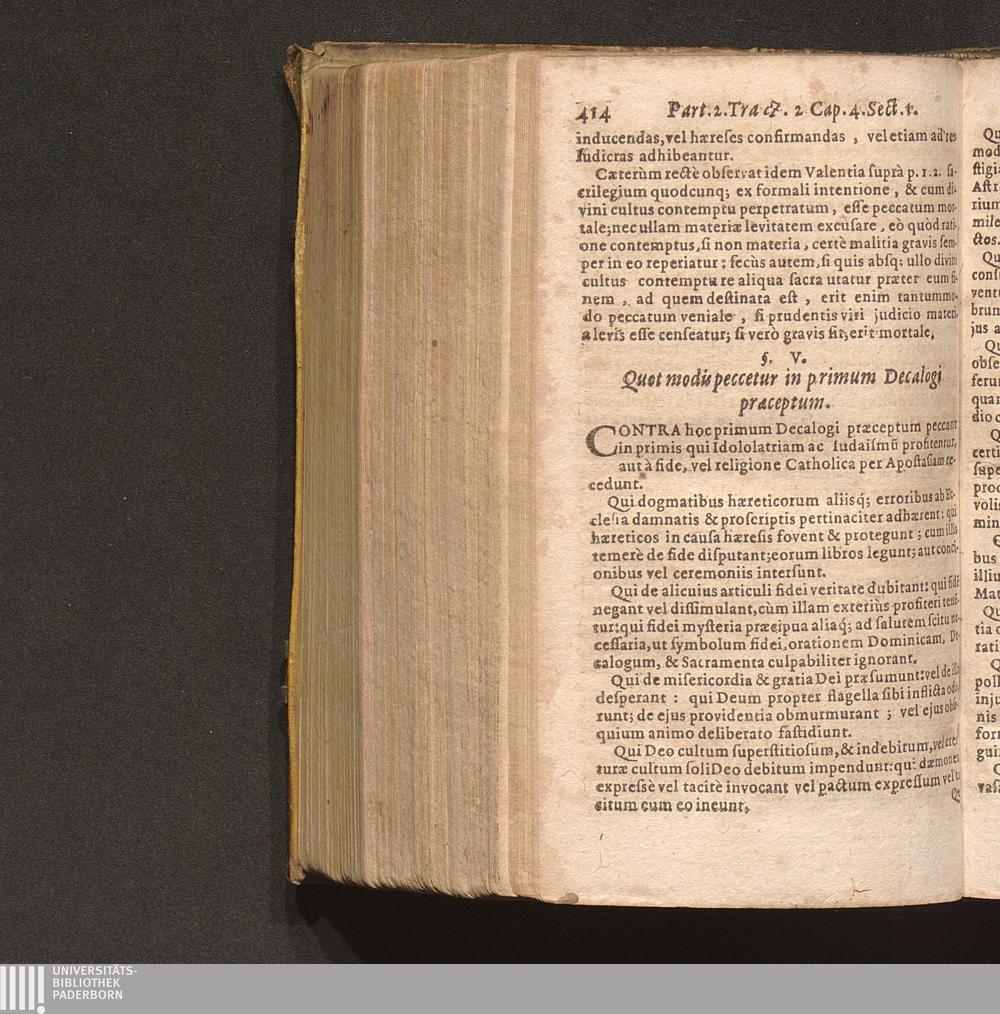 414 Part.2.Tract. 2 Cap.4.Sect.1.
inducendas,vel hæreſes confirmandas , vel etiam ad res
ludicras adhibeantur.
Cæterùm rectè obſervat idem Valentia ſuprà p.1.2. ſa-
crilegium quodcunq; ex formali intentione , & cum di-
vini cultus contemptu perpetratum , eſſe peccatum mor-
tale;nec ullam materiæ levitatem excuſare , eò quòd rati-
one contemptus,ſi non materia , certè malitia gravis ſem-
per in eo reperiatur : ſecùs autem,ſi quis abſq; ullo divini
cultus contemptu re aliqua ſacra utatur præter eum fi-
nem , ad quem deſtinata eſt , erit enim tantummo-
do peccatum veniale , ſi prudentis viri judicio materi-
a levis eſſe cenſeatur; ſi verò gravis ſit,erit mortale.
§. V.
Quot modis peccetur in primum Decalogi
præceptum.
CONTRA hoc primum Decalogi præceptum peccant
in primis qui Idololatriam ac Iudaiſmū profitentur,
aut à fide, vel religione Catholica per Apoſtaſiam re-
cedunt.
Qui dogmatibus hæreticorum aliisq́; erroribus ab Ec-
cleſia damnatis & proſcriptis pertinaciter adhærent: qui
hæreticos in cauſa hæreſis fovent & protegunt ; cum illis
temerè de fide diſputant;eorum libros legunt; aut conci-
onibus vel ceremoniis interſunt.
Qui de alicuius articuli fidei veritate dubitant: qui fidē
negant vel diſſimulant,cùm illam exteriùs profiteri tenē-
tur:qui fidei myſteria præcipua aliaq́; ad ſalutem ſcitu ne-
ceſſaria,ut ſymbolum fidei,orationem Dominicam, De-
calogum, & Sacramenta culpabiliter ignorant.
Qui de miſericordia & gratia Dei præſumunt:vel de illa
deſperant : qui Deum propter flagella ſibi inflicta ode-
runt; de ejus providentia obmurmurant ; vel ejus obſe-
quium animo deliberato faſtidiunt.
Qui Deo cultum ſuperſtitioſum,& indebitum,vel crea-
turæ cultum ſoli Deo debitum impendunt:qui dæmones
expreſsè vel tacitè invocant vel pactum expreſſum vel ta-
citum cum eo ineunt,
Qu
Qu
mod
ſtigia
Aſtr
rium
mile
ctos.
Qu
conſ
ventu
brum
jus a
Qu
obſe
ferun
quan
dio c
Q
certi
ſupe
proc
volis
min
bus
illiu
Mat
Qu
tia c
rati
Q
poll
inju
nis
forn
gui
vaſa
UNIVERSITÄTS-
BIBLIOTHEK
PADERBORN